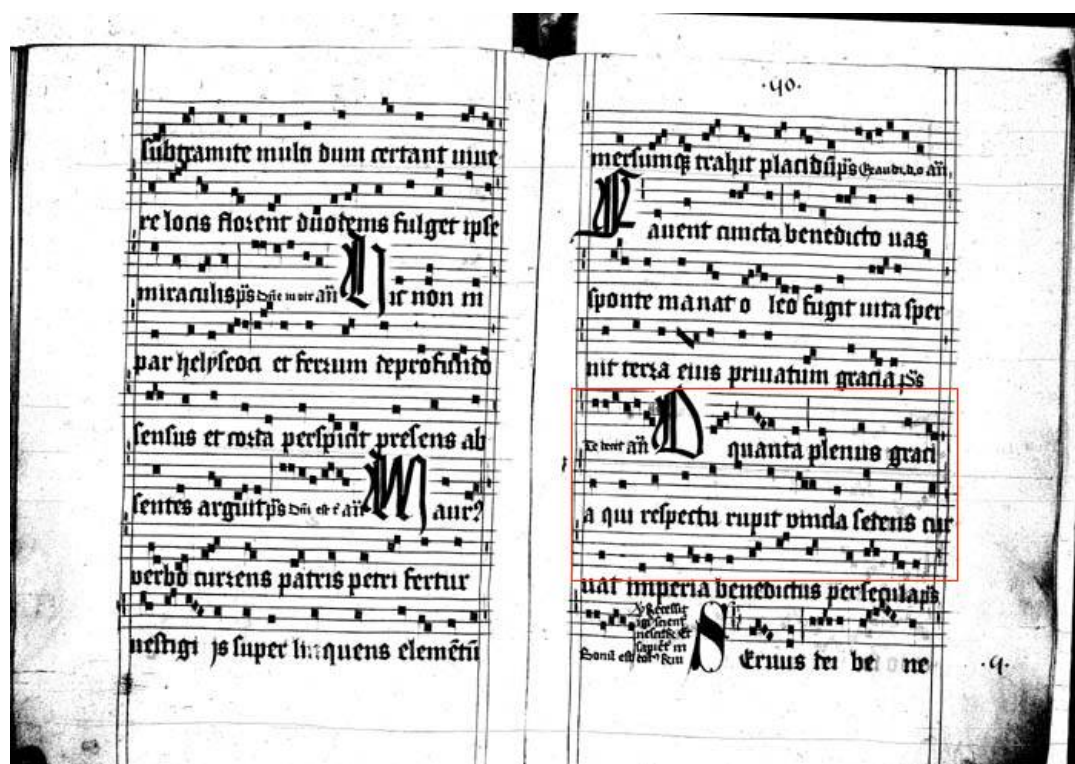 subtramite multi dum certant uiue
re locis florent duotenis fulget ipse
miraculis p̄s Dn̄e in uir an̄ Hic non in
par helyseoa et ferrum deprofundo
sensus et corda perspicit presens ab
sentes arguit p̄s Dn̄i est t̄ an̄ Maur?
uerbo currens patris petri fertur
uestigi js super linquens elemētū
.90.
mersumqꝫ trahit placidū p̄s Exaudi.d.o an̄.
Pauent cuncta benedicto uas
sponte manat o leo fugit uita sper
nit terra eius priuatum gracia p̄s
Te decet an̄ O quanta plenus graci
a qui respectu rupit vincla seruens cur
uat imperia benedictus persequla p̄s
Bonū est
Seruus dei be ne
.q.